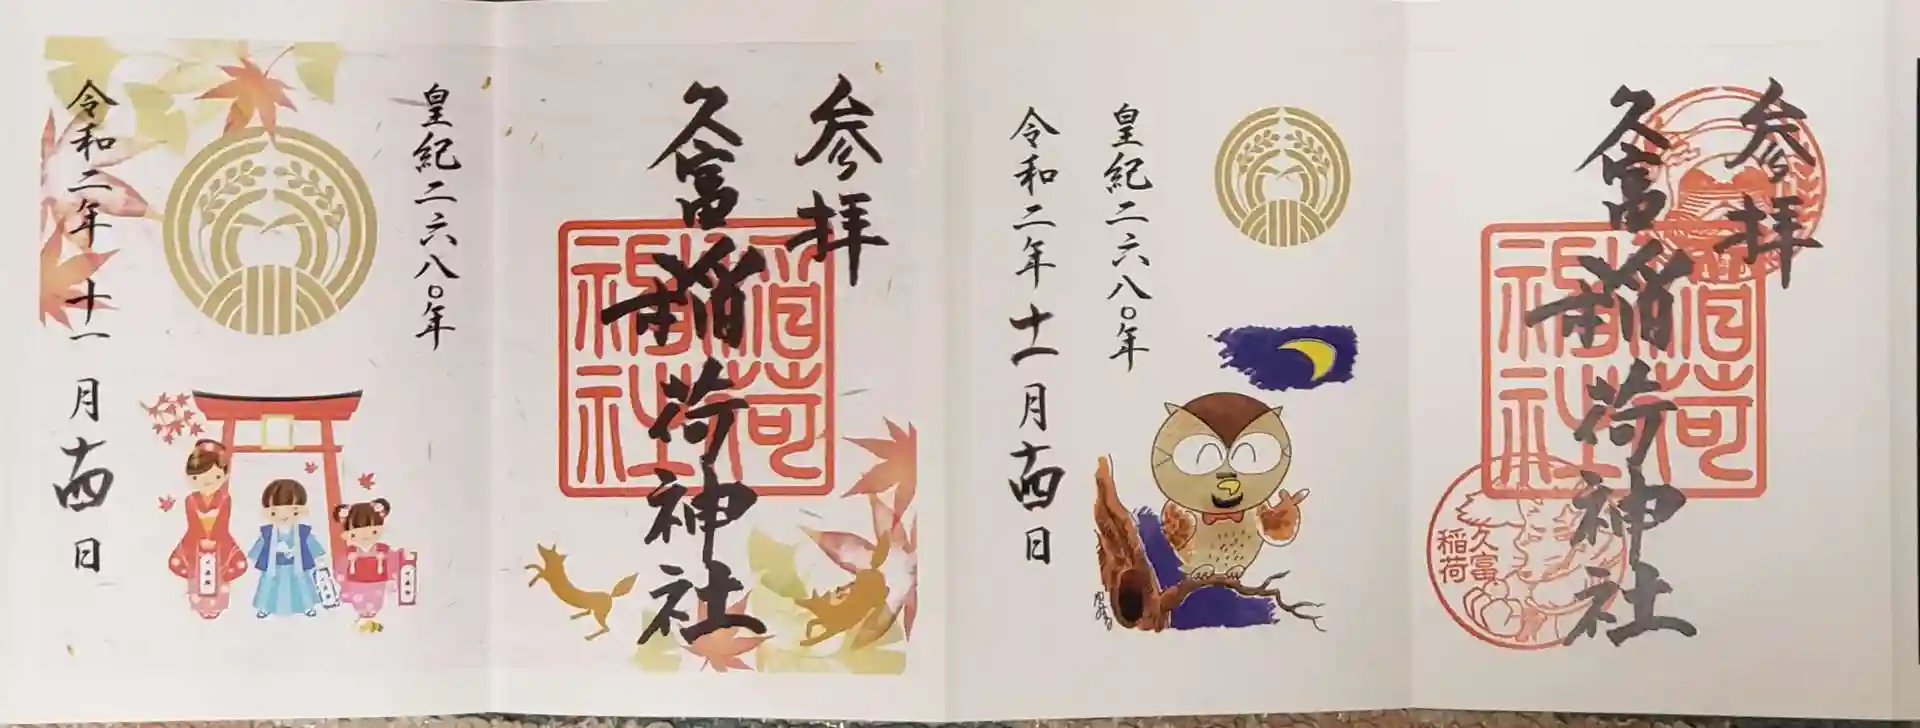 参拝
久富稲荷神社
稲荷
神社
久富
稲荷
皇紀二六八〇年
令和二年十一月十四日
参拝
久富稲荷神社
稲荷
神社
皇紀二六八〇年
令和二年十一月十四日